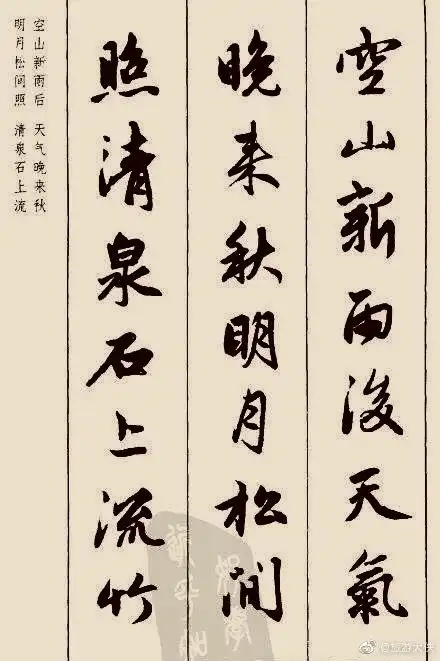 空山新雨後天氣
晚来秋明月松间
照清泉石上流竹
空山新雨后 天气晚来秋
明月松间照 清泉石上流
@旅游大侠